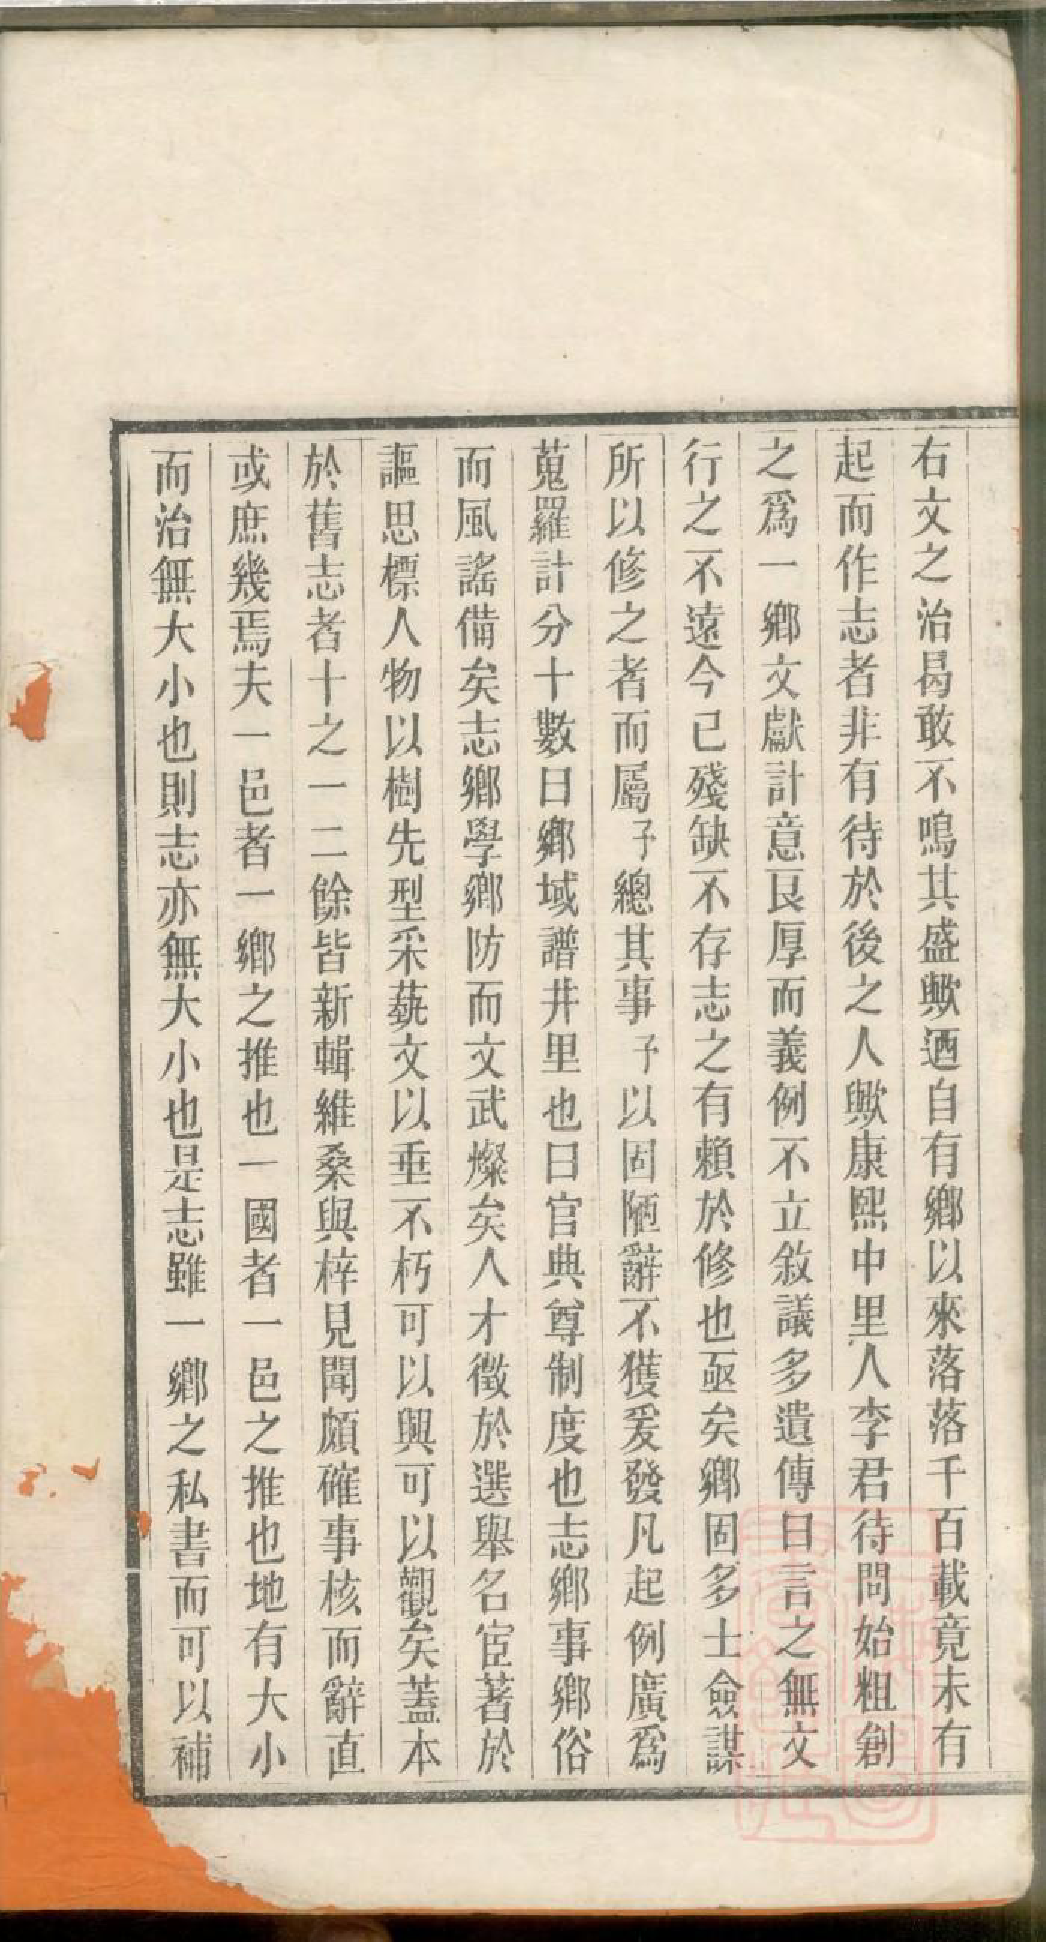 右文之治曷敢不鳴其盛歟迺自有鄉以來落落千百載竟未有
起而作志者非有待於後之人歟康熙中里人李君待問始粗創
之爲一鄉文獻計意良厚而義例不立敘議多遺傳曰言之無文
行之不遠今已殘缺不存志之有賴於修也亟矣鄉固多士僉謀
所以修之者而屬予總其事予以固陋辭不獲爰發凡起例廣爲
蒐羅計分十數曰鄉域譜井里也曰官典尊制度也志鄉事鄉俗
而風謠備矣志鄉學鄉防而文武燦矣人才徵於選舉名宦著於
謳思標人物以樹先型采蓺文以垂不朽可以興可以觀矣蓋本
於舊志者十之一二餘皆新輯維桑與梓見聞頗確事核而辭直
或庶幾焉夫一邑者一鄉之推也一國者一邑之推也地有大小
而治無大小也則志亦無大小也是志雖一鄉之私書而可以補